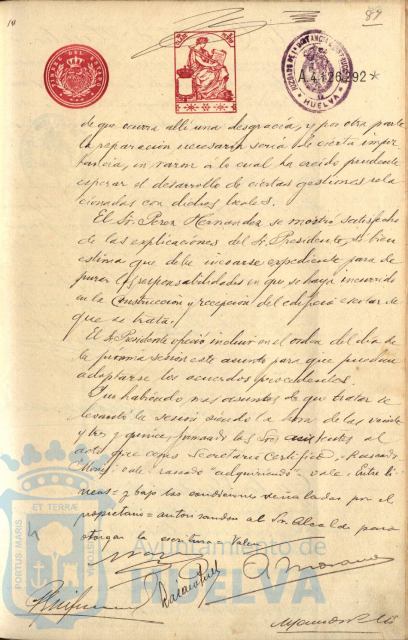 10
87
TIMBRE DEL ESTADO
JUZGADO DE 1ª INSTANCIA E INSTRUCCION
HUELVA
A.4126.292*
de que ocurra allí una desgracia, y por otra parte
la reparación necesaria sería de cierta impor-
tancia, en razon a lo cual ha creido prudente
esperar el desarrollo de ciertas gestiones rela-
cionadas con dichos locales.
El Sr. Perez Hernandez se mostró satisfecho
de las explicaciones del Sr. Presidente, si bien
estima que debe incoarse expediente para de-
purar las responsabilidades en que se haya incurrido
en la construcción y recepción del edificio escolar de
que se trata.
El Sr. Presidente ofreció incluir en el orden del dia de
la próxima sesión este asunto para que puedan
adoptarse los acuerdos procedentes.
Y no habiendo mas asuntos de que tratar se
levantó la sesión siendo la hora de las veinte
y tres y quince, firmando los Sres. asistentes al
acto que como Secretario Certifico.=
vale= raspado "adquiriendo"= vale= Entre li-
neas= y bajo las condiciones señaladas por el
propietario= autorizando al Sr. Alcalde para
otorgar la escritura= Vale=
ET TERRÆ
PORTUS MARIS
CUSTODIA
Ayuntamiento de
HUELVA